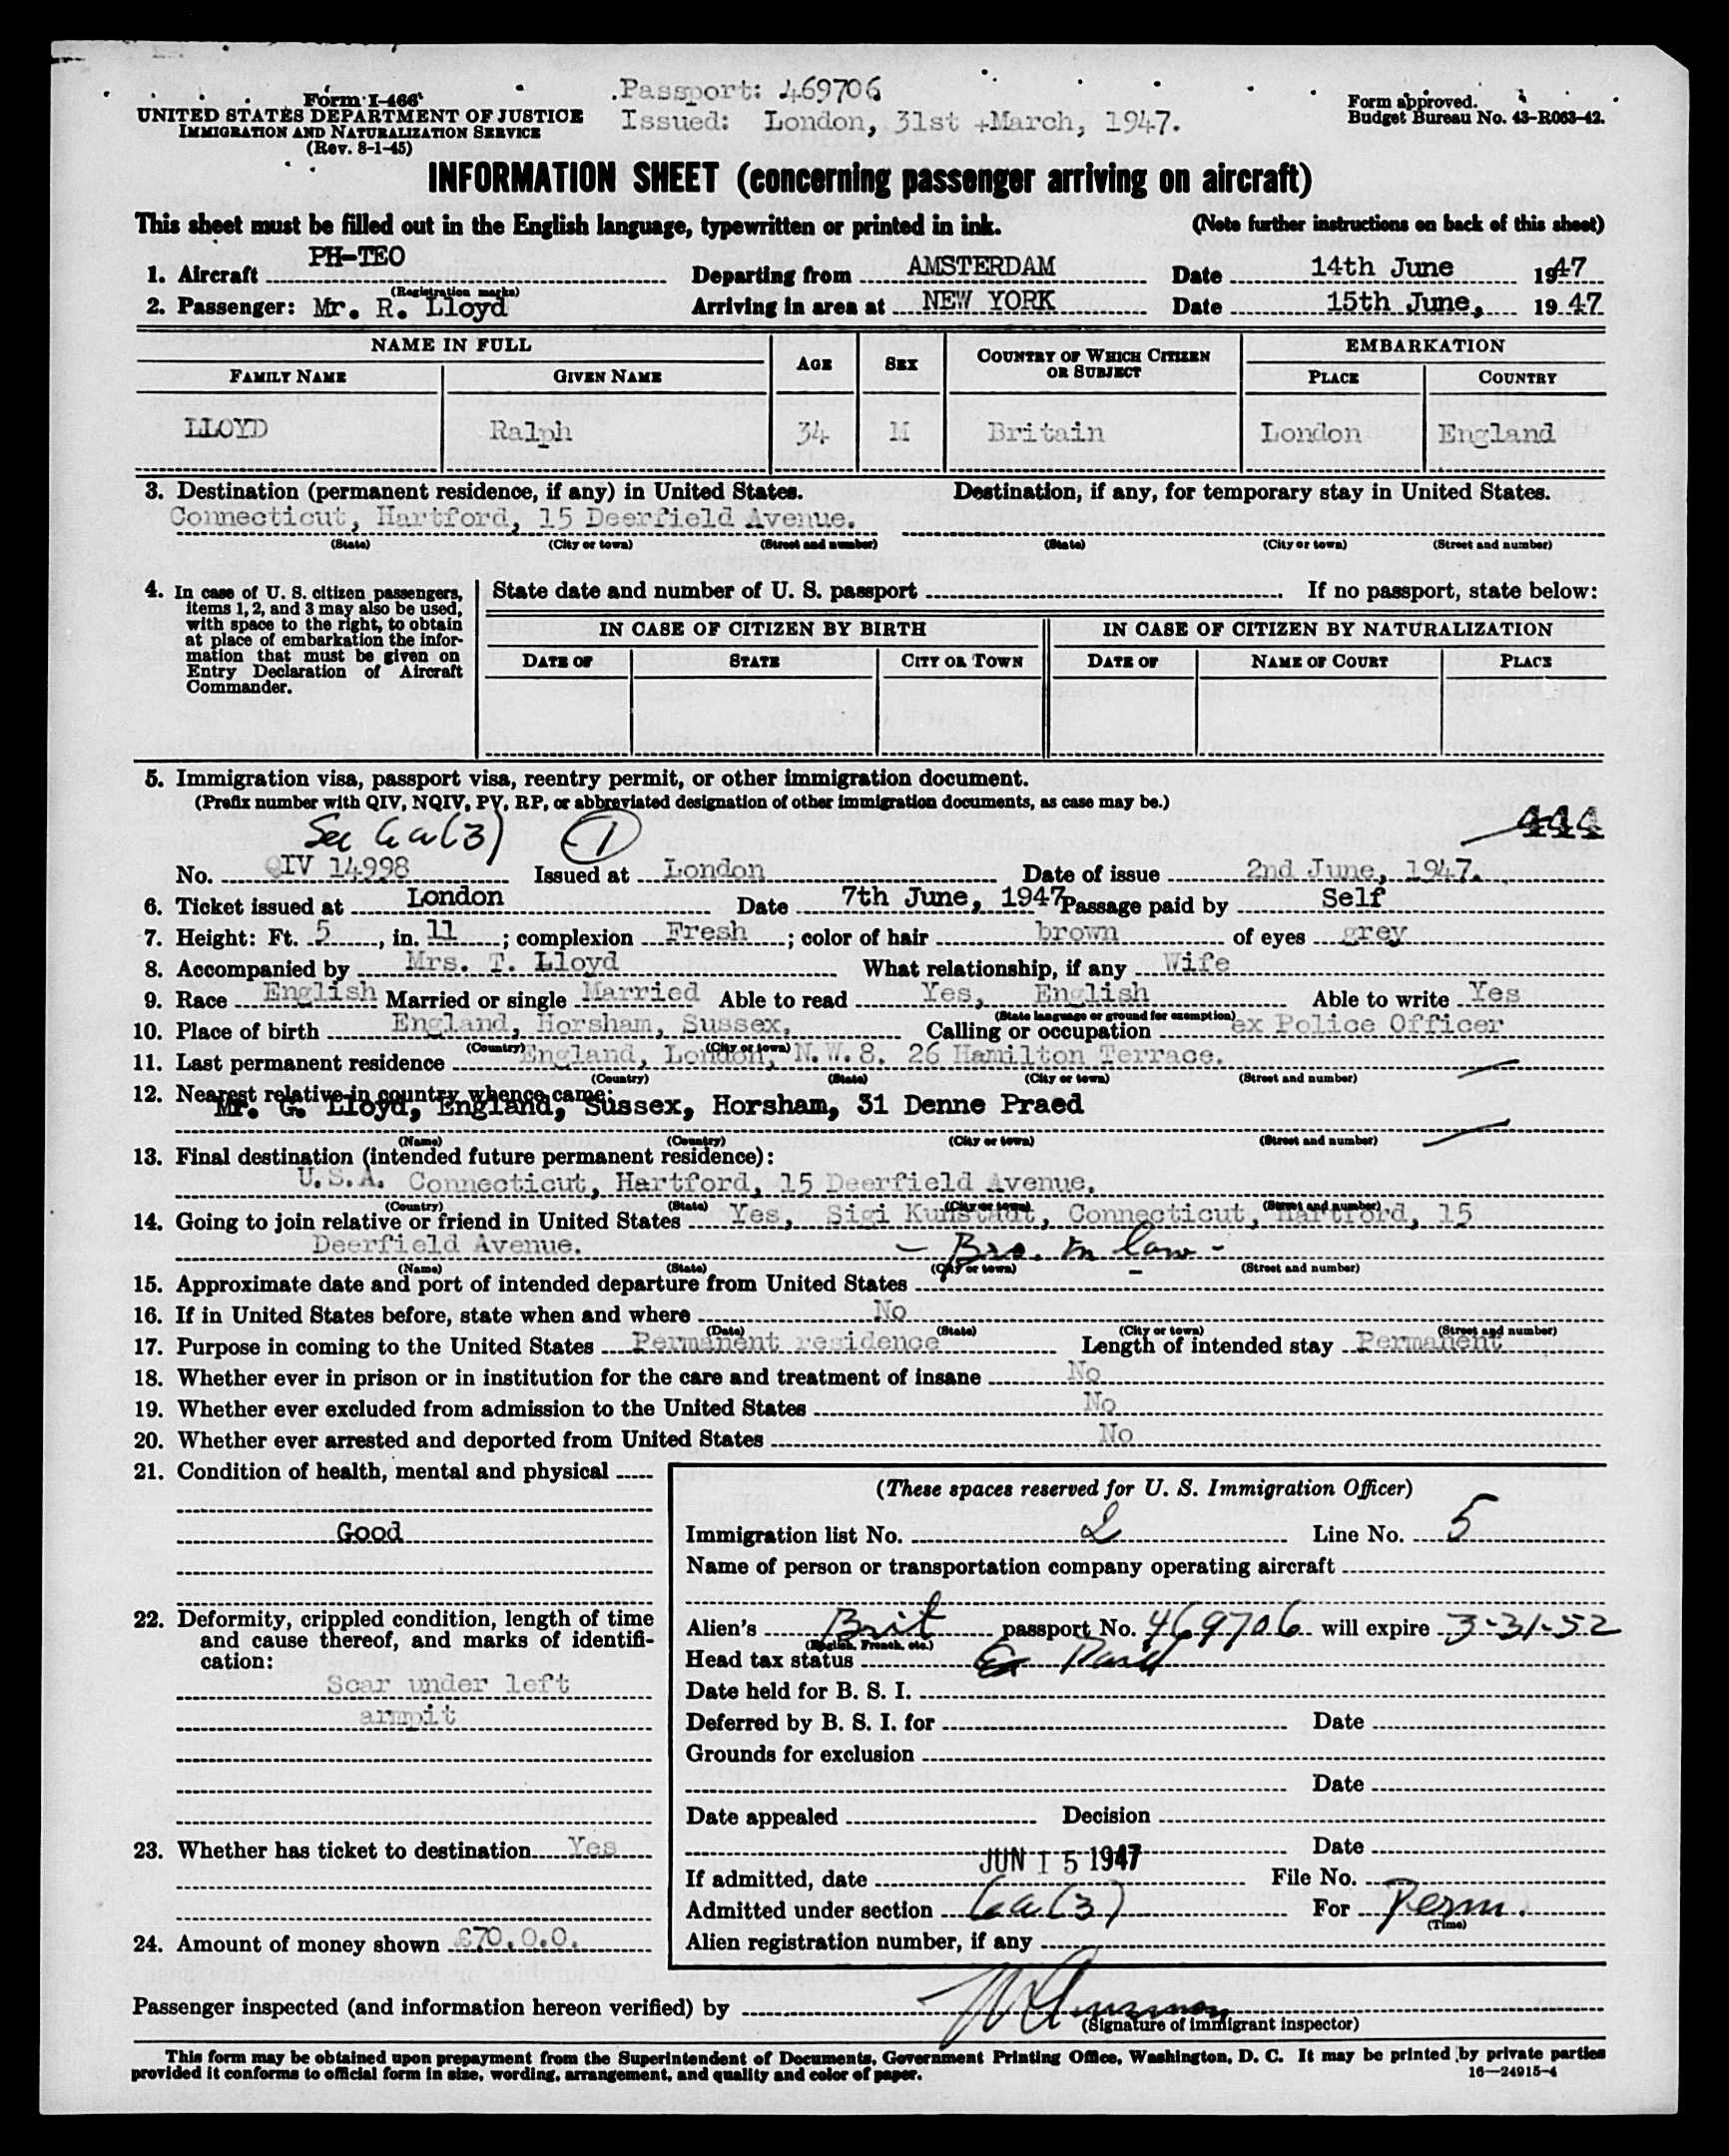 Form I-466
UNITED STATES DEPARTMENT OF JUSTICE
IMMIGRATION AND NATURALIZATION SERVICE
(Rev. 8-1-45)
Passport: 469706
Issued: London, 31st March, 1947.
Form approved.
Budget Bureau No. 43-R063-42.
INFORMATION SHEET (concerning passenger arriving on aircraft)
This sheet must be filled out in the English language, typewritten or printed in ink. (Note further instructions on back of this sheet)
1. Aircraft PH-TEO Departing from AMSTERDAM Date 14th June 1947
(Registration marks)
2. Passenger: Mr. R. Lloyd Arriving in area at NEW YORK Date 15th June, 1947
NAME IN FULL AGE SEX COUNTRY OF WHICH CITIZEN OR SUBJECT EMBARKATION
FAMILY NAME GIVEN NAME PLACE COUNTRY
LLOYD Ralph 34 M Britain London England
3. Destination (permanent residence, if any) in United States. Destination, if any, for temporary stay in United States.
Connecticut, Hartford, 15 Deerfield Avenue.
(State) (City or town) (Street and number) (State) (City or town) (Street and number)
4. In case of U. S. citizen passengers,
items 1, 2, and 3 may also be used,
with space to the right, to obtain
at place of embarkation the infor-
mation that must be given on
Entry Declaration of Aircraft
Commander.
State date and number of U. S. passport If no passport, state below:
IN CASE OF CITIZEN BY BIRTH IN CASE OF CITIZEN BY NATURALIZATION
DATE OF STATE CITY OR TOWN DATE OF NAME OF COURT PLACE
5. Immigration visa, passport visa, reentry permit, or other immigration document.
(Prefix number with QIV, NQIV, PV, RP, or abbreviated designation of other immigration documents, as case may be.)
Sec 6a(3) 1 444
No. QIV 14998 Issued at London Date of issue 2nd June, 1947.
6. Ticket issued at London Date 7th June, 1947 Passage paid by Self
7. Height: Ft. 5, in. 11; complexion Fresh; color of hair brown of eyes grey
8. Accompanied by Mrs. T. Lloyd What relationship, if any Wife
9. Race English Married or single Married Able to read Yes, English Able to write Yes
(State language or ground for exemption)
10. Place of birth England, Horsham, Sussex. Calling or occupation ex Police Officer
(Country) (City or town)
11. Last permanent residence England, London, N.W.8. 26 Hamilton Terrace.
(Country) (State) (City or town) (Street and number)
12. Nearest relative in country whence came:
Mr. G. Lloyd, England, Sussex, Horsham, 31 Denne Praed
(Name) (Country) (City or town) (Street and number)
13. Final destination (intended future permanent residence):
U.S.A. Connecticut, Hartford, 15 Deerfield Avenue.
(Country) (State) (City or town) (Street and number)
14. Going to join relative or friend in United States Yes, Sigi Kunstadt, Connecticut, Hartford, 15
Deerfield Avenue. - Bro. in law -
(Name) (State) (City or town) (Street and number)
15. Approximate date and port of intended departure from United States
16. If in United States before, state when and where No
(Date) (State) (City or town) (Street and number)
17. Purpose in coming to the United States Permanent residence Length of intended stay Permanent
18. Whether ever in prison or in institution for the care and treatment of insane No
19. Whether ever excluded from admission to the United States No
20. Whether ever arrested and deported from United States No
21. Condition of health, mental and physical
Good
22. Deformity, crippled condition, length of time
and cause thereof, and marks of identifi-
cation:
Scar under left
armpit
23. Whether has ticket to destination Yes
24. Amount of money shown £70.0.0.
(These spaces reserved for U. S. Immigration Officer)
Immigration list No. 2 Line No. 5
Name of person or transportation company operating aircraft
Alien's Brit passport No. 469706 will expire 3-31-52
(English, French, etc.)
Head tax status Paid
Date held for B. S. I.
Deferred by B. S. I. for Date
Grounds for exclusion
Date
Date appealed Decision
Date
If admitted, date JUN 15 1947 File No.
Admitted under section 6a(3) For Perm.
(Time)
Alien registration number, if any
Passenger inspected (and information hereon verified) by
(Signature of immigrant inspector)
This form may be obtained upon prepayment from the Superintendent of Documents, Government Printing Office, Washington, D. C. It may be printed by private parties
provided it conforms to official form in size, wording, arrangement, and quality and color of paper. 16—24915-4